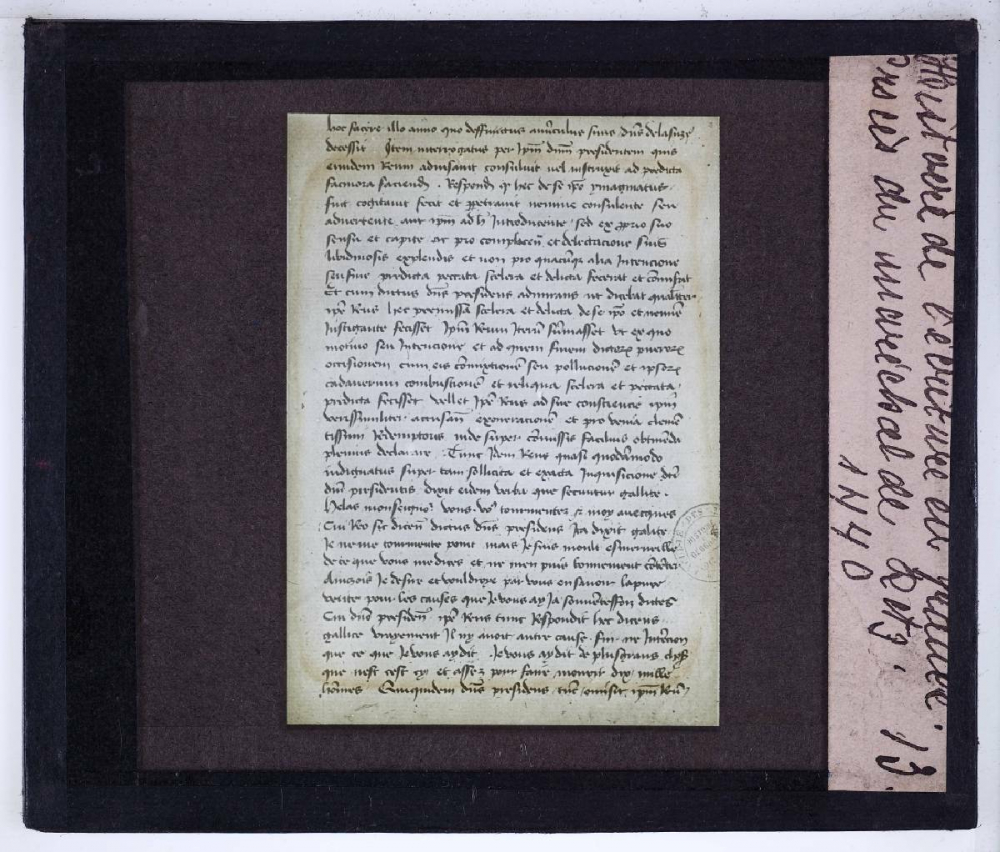 hec facere illo anno quo deffunctus avunculus suus dns delasuze
decessit Item interrogatus per ipm dnm presidentem quis
eumdem Reum advisavit consuluit vel instruxit ad predicta
facinora faciend . Respond q hec de se ipo ymaginatus
fuit cogitavit fecit et ppetravit nemine consulente seu
advertente aut ipm ad h introducente sed ex pprio suo
sensu et capite ac pro complacen et delectacione suis
libidinosis explendis et non pro quacuq alia Intencione
seu fine predicta peccata scelera et delicta fecerat et comiserat
Et cum dictus dns presidens admirans ut dicebat qualiter
ipe Reus hec premissa scelera et delicta de se ipo et nemine
Instigante fecisset Ipm Reum Iteru sumasset ut ex quo
motivo seu Intencione et ad quem finem dictor pueror
occisionem cum eis comixtione seu pollucione et ipsor
cadaverum combustione et reliqua scelera et peccata
predicta fecisset vellet Ipe Reus ad sue consciencie ipm
verissimiliter accusan exoneracione et pro venia cleme
tissimi Redemptoris inde super comissis facilius obtineda
plenius declarare . Tunc Idem Reus quasi quodamodo
indignatus super tam sollicita et exacta Inquisicione dci
dni presidentis dixit eidem verba que secuntur gallice .
helas monseigno vous vo tourmentez & moy avecques
Cui Reo sic dicen dictus dns presidens Ita dixit galice
Je ne me tourmente point mais Je suis moult esmerveille
de ce que vous me dices et ne men puis bonnement coteter
Aincois Je desire et vouldroye par vous en savoir la pure
verite pour les causes que Je vous ay Ja souventeffoiz dites
Cui dno presiden ipe Reus tunc Respondit hec dicens
gallice vrayement Il ny avoit autre cause fin ne Intecion
que ce que Je vous ay dit . Je vous ay dit de plus grans choses
que nest cest cy et assez pour faire mourir dix mille
homes Quiquidem dns presidens tuc omisit ipm Reu
Histoire de l'écriture en France.
Procès du maréchal de Retz. 13
1440